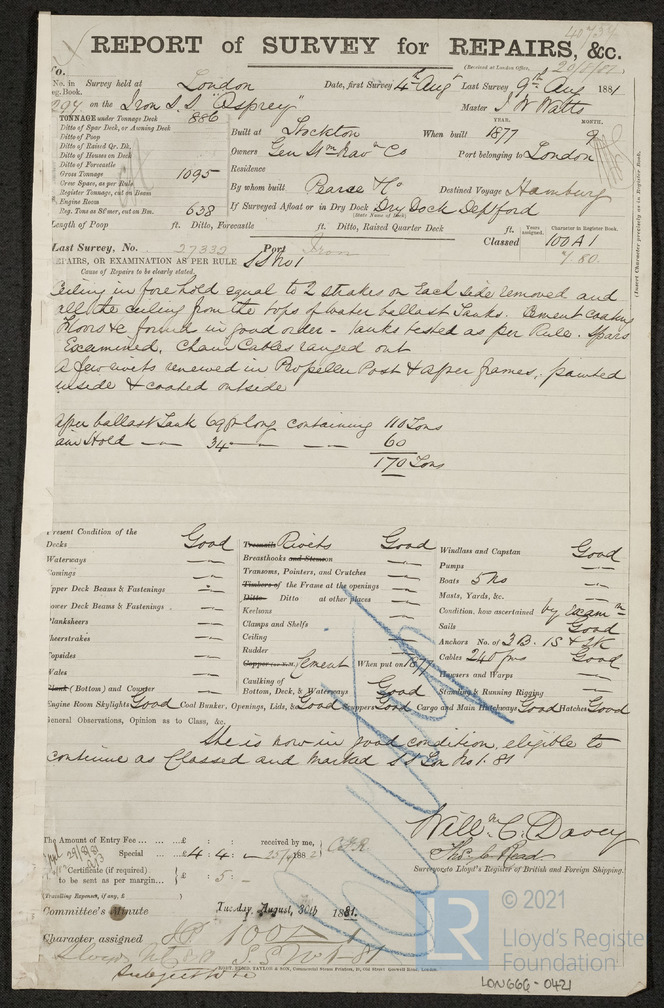 REPORT of SURVEY for REPAIRS, &c.
(Received at London Office,
No. in Survey held at London Date, first Survey 4th Augt Last Survey 9th Aug 1881
Reg. Book.
294 on the Iron S.S. "Osprey" Master J W Watts
TONNAGE under Tonnage Deck 886
Ditto of Spar Deck, or Awning Deck
Ditto of Poop
Ditto of Raised Qr. Dk.
Ditto of Houses on Deck
Ditto of Forecastle
Gross Tonnage 1095
Crew Space, as per Rule
Register Tonnage, cut on Beam
Engine Room
Reg. Tons as Stmr, cut on Bm. 638
Built at Stockton When built YEAR. 1877 MONTH. 9
Owners Genl Stm Navn Co Port belonging to London
Residence
By whom built Pearse & Co Destined Voyage Hamburg
If Surveyed Afloat or in Dry Dock Dry Dock Deptford
(State Name of Dock)
Length of Poop ft. Ditto, Forecastle ft. Ditto, Raised Quarter Deck ft.
Last Survey, No. 27332 Port Iron
Classed Years assigned. Character in Register Book. 100A1
7 80
(Insert Character precisely as in Register Book.
REPAIRS, OR EXAMINATION AS PER RULE SS No 1
Cause of Repairs to be clearly stated.
Ceiling in fore hold equal to 2 strakes on each side removed and
all the ceiling from the tops of water ballast Tanks. Cement coating
Floors &c found in good order - Tanks tested as per Rule. Spars
Examined. Chain Cables ranged out
A few rivets renewed in Propeller Post & after frames; painted
inside & coated outside
After ballast Tank 69 ft long containing 110 Tons
Main Hold — — 34 — — — 60
170 Tons
Present Condition of the
Decks Good
Waterways —
Comings —
Upper Deck Beams & Fastenings —
Lower Deck Beams & Fastenings —
Planksheers —
Sheerstrakes —
Topsides —
Wales —
Plank (Bottom) and Counter —
Treenails Rivets Good
Breasthooks and Stemson —
Transoms, Pointers, and Crutches —
Timbers of the Frame at the openings —
Ditto Ditto at other places —
Keelsons —
Clamps and Shelfs —
Ceiling —
Rudder —
Copper Cement When put on 1877
Caulking of
Bottom, Deck, & Waterways Good
Windlass and Capstan Good
Pumps —
Boats 5 No —
Masts, Yards, &c. —
Condition, how ascertained by examn
Sails Good
Anchors No. of 3B. 1S & 2K
Cables 240 fms Good
Hawsers and Warps —
Standing & Running Rigging —
Engine Room Skylights Good Coal Bunker, Openings, Lids, & Good Scuppers Good Cargo and Main Hatchways Good Hatches Good
General Observations, Opinion as to Class, &c.
She is now in good condition, eligible to
continue as Classed and marked SS Lon No 1. 81
Willm C. Davey
Thos. C. Read
Surveyors to Lloyd's Register of British and Foreign Shipping.
The Amount of Entry Fee ... ... £ : : received by me,
Special ... £ 4 : 4 : —
Certificate (if required)
to be sent as per margin... £ : 5 : —
(Travelling Expenses, if any, £
Committee's Minute Tuesday, August, 30th 1881.
Character assigned 100 A 1
S.S. No 1-81
© 2021
LR
Lloyd's Register
Foundation
LON666-0421